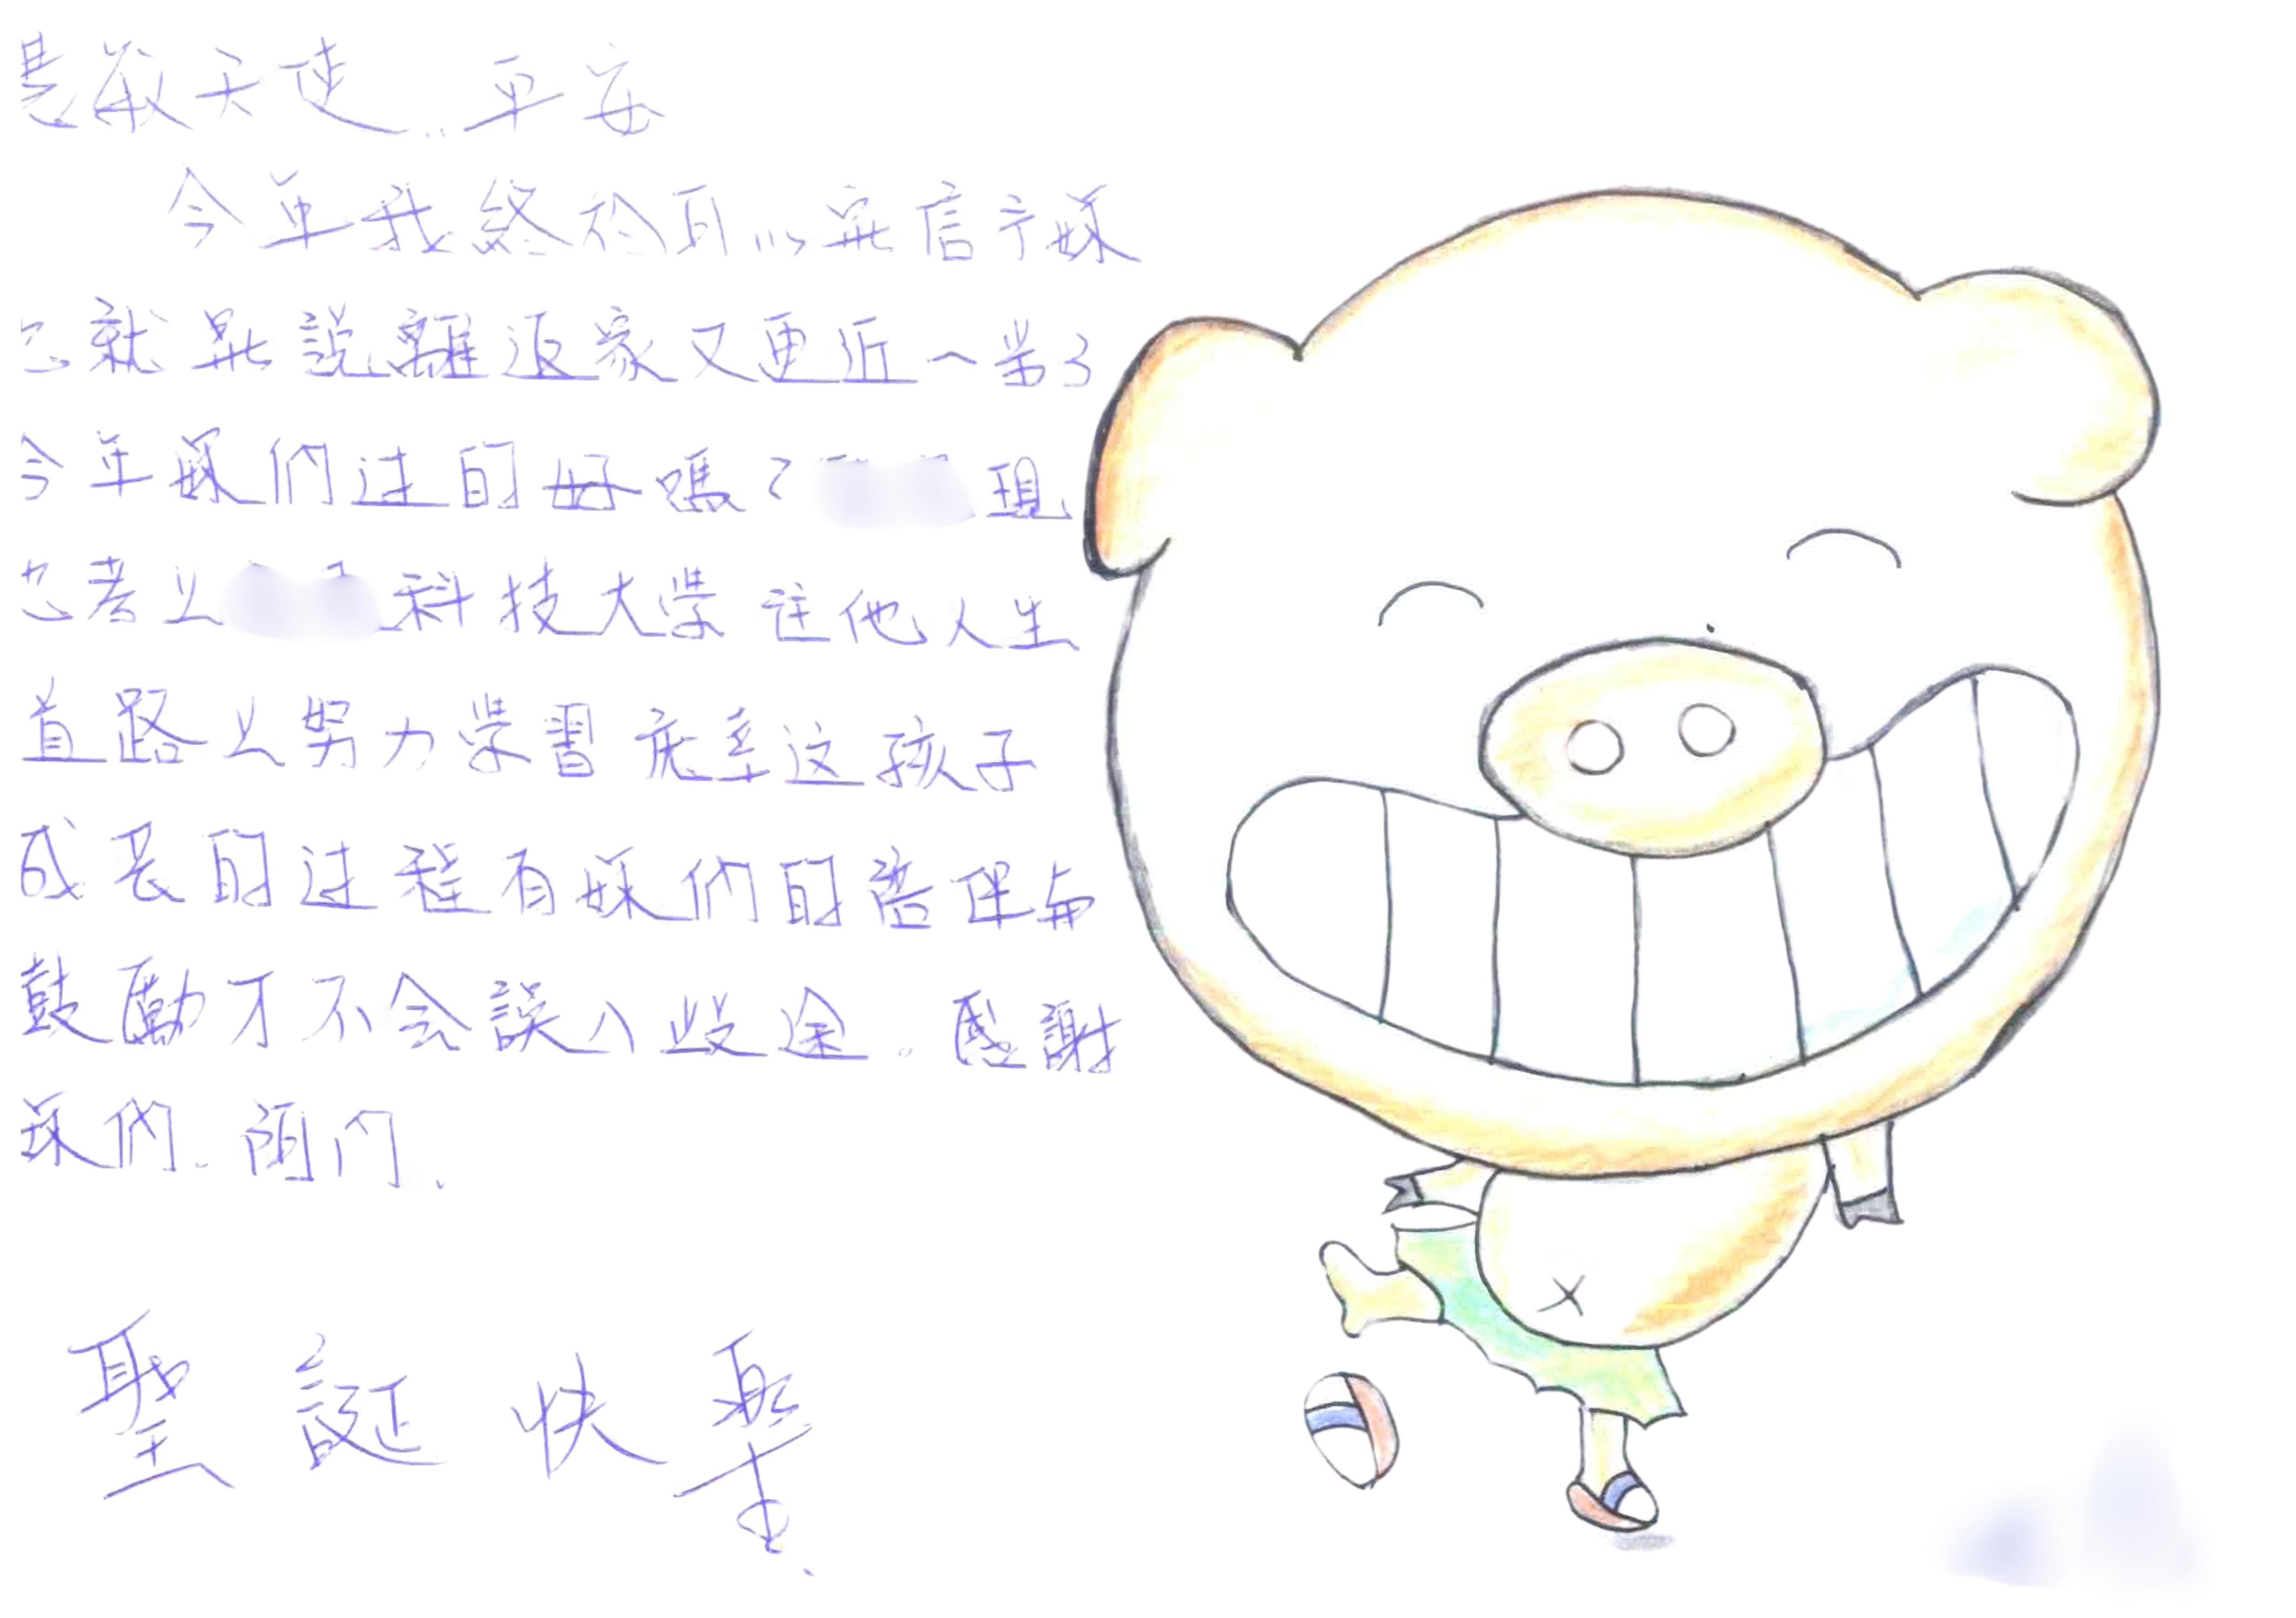 慧敏天使..平安
今年我終於可以寫信予妳
也就是說離返家又更近一步了
今年妳們过的好嗎? 現
也考上 科技大學 在他人生
道路上努力學習 慶幸这孩子
成長的过程有妳們的陪伴與
鼓勵才不会誤入歧途。感謝
妳們.
聖誕快樂